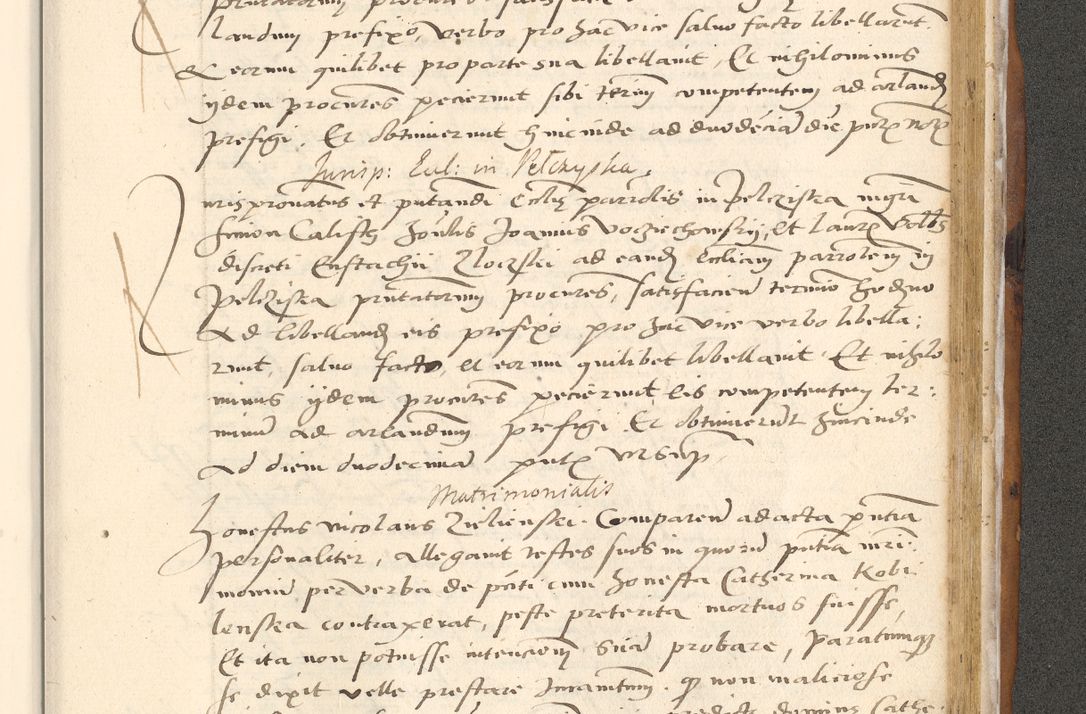 landum prefixo, verbo pro hac vice salvo facto libellarunt.
& eorum quilibet pro parte sua libellavit, Et nihilominus
ijdem procures pecierunt sibi terminum competentem ad arland
prefigi. Et obtinuerunt hincinde ad duodeciam die putx
Jurisp: Eccl: in Pelczyska
uris pronatus et putandi Ecclie parrolis in Pelcziska
Simon Califtz Joannis Voczichowskij, et Laurx
discreti Eustachii Zloczskei ad eand Eccliam parrolem in
Pelcziska prntatorum procures, satisfacien termino hodno
ad libelland eis prefixo pro hac vice verbo libella:
runt, salvo facto, et eorum quilibet libellavit. Et nihilo
minus ijdem procures pecierunt eis competentem ter:
minum ad arlandum prefigi. Et obtinuerunt hincinde
ad diem duodecima putx utsup
Matrimonialis
Honestus Nicolaus Zielienski. Comparen ad acta pntia
personaliter, allegavit testes suos in quorum pntia mri:
monium per verba de pnti cum honesta Catherina Kobi
lenska contraxerat, peste preterita mortuos fuisse,
Et ita non potuisse intencionem suam probare, paratumque
se dixit velle prestare Juramtum. q non maliciose